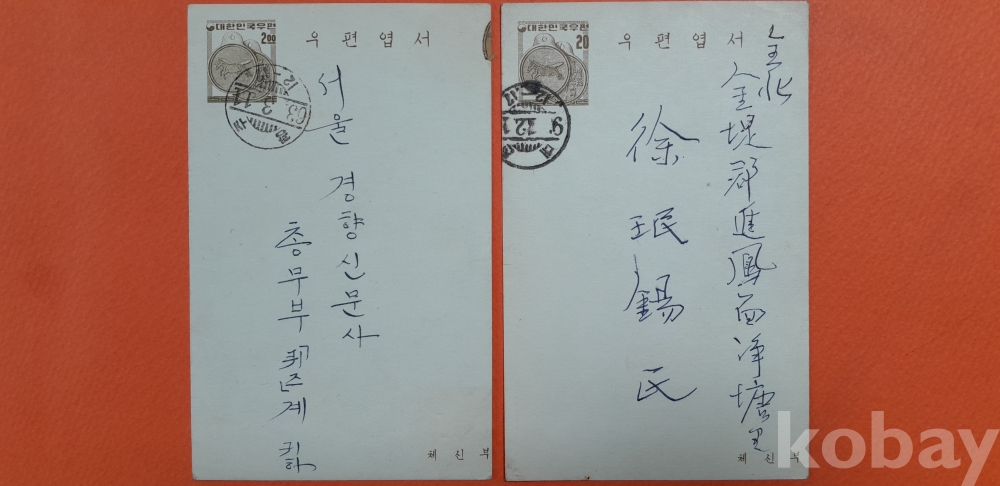 대한민국우편
2.00
우편엽서
서울 경향신문사
총무부 퀴즈계 귀하
체신부
대한민국우편
20
우편엽서
全北
金堤郡進鳳面淨塘里
徐珉錫氏
체신부
kobay